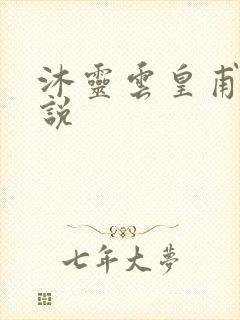 沐靈雲皇甫
說
七年大夢